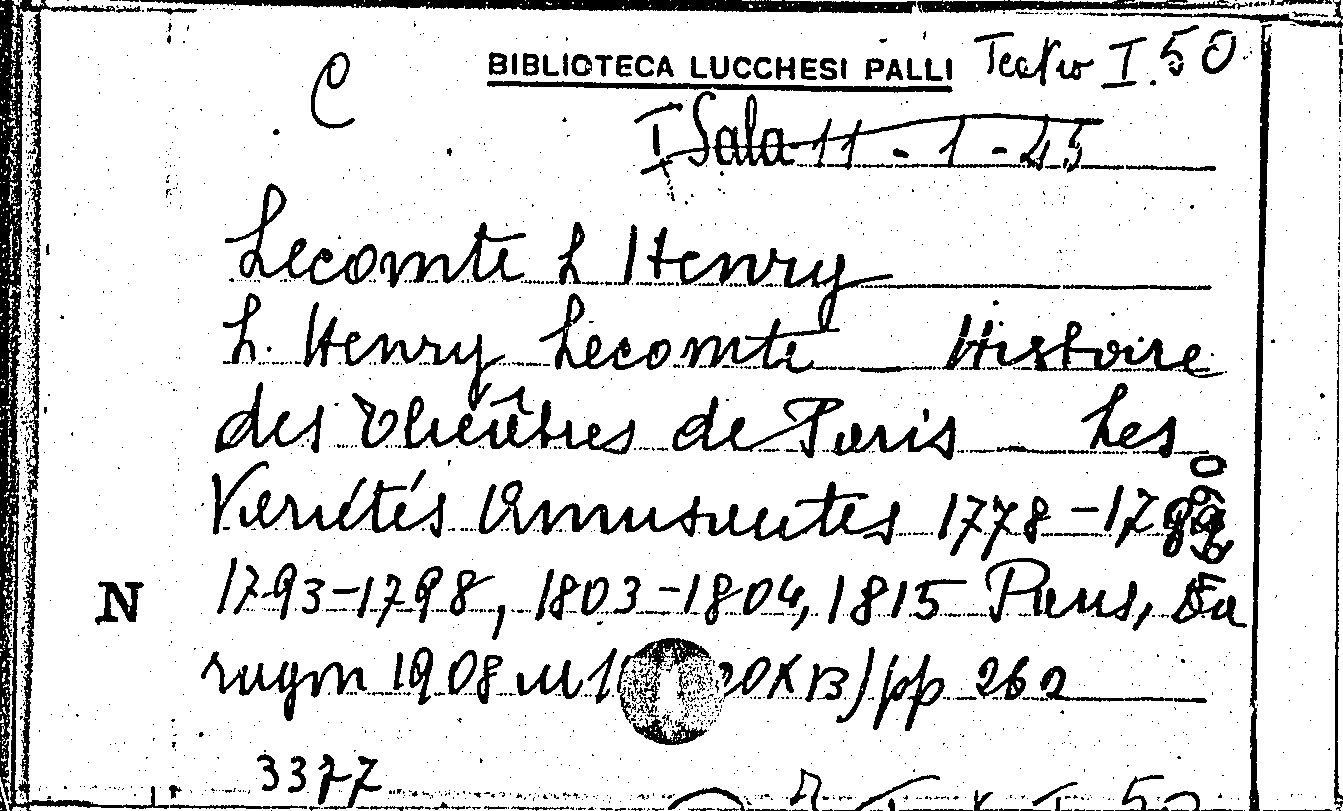 C BIBLIOTECA LUCCHESI PALLI Teatro I.50
I Sala 11 - 1 - 45
Lecomte L Henry
L. Henry Lecomte - Histoire
des Théâtres de Paris - Les
Variétés Amusantes 1778-1789
1793-1798, 1803-1804, 1815 Paris, Da
N
ragon 1908 pp 262
3377